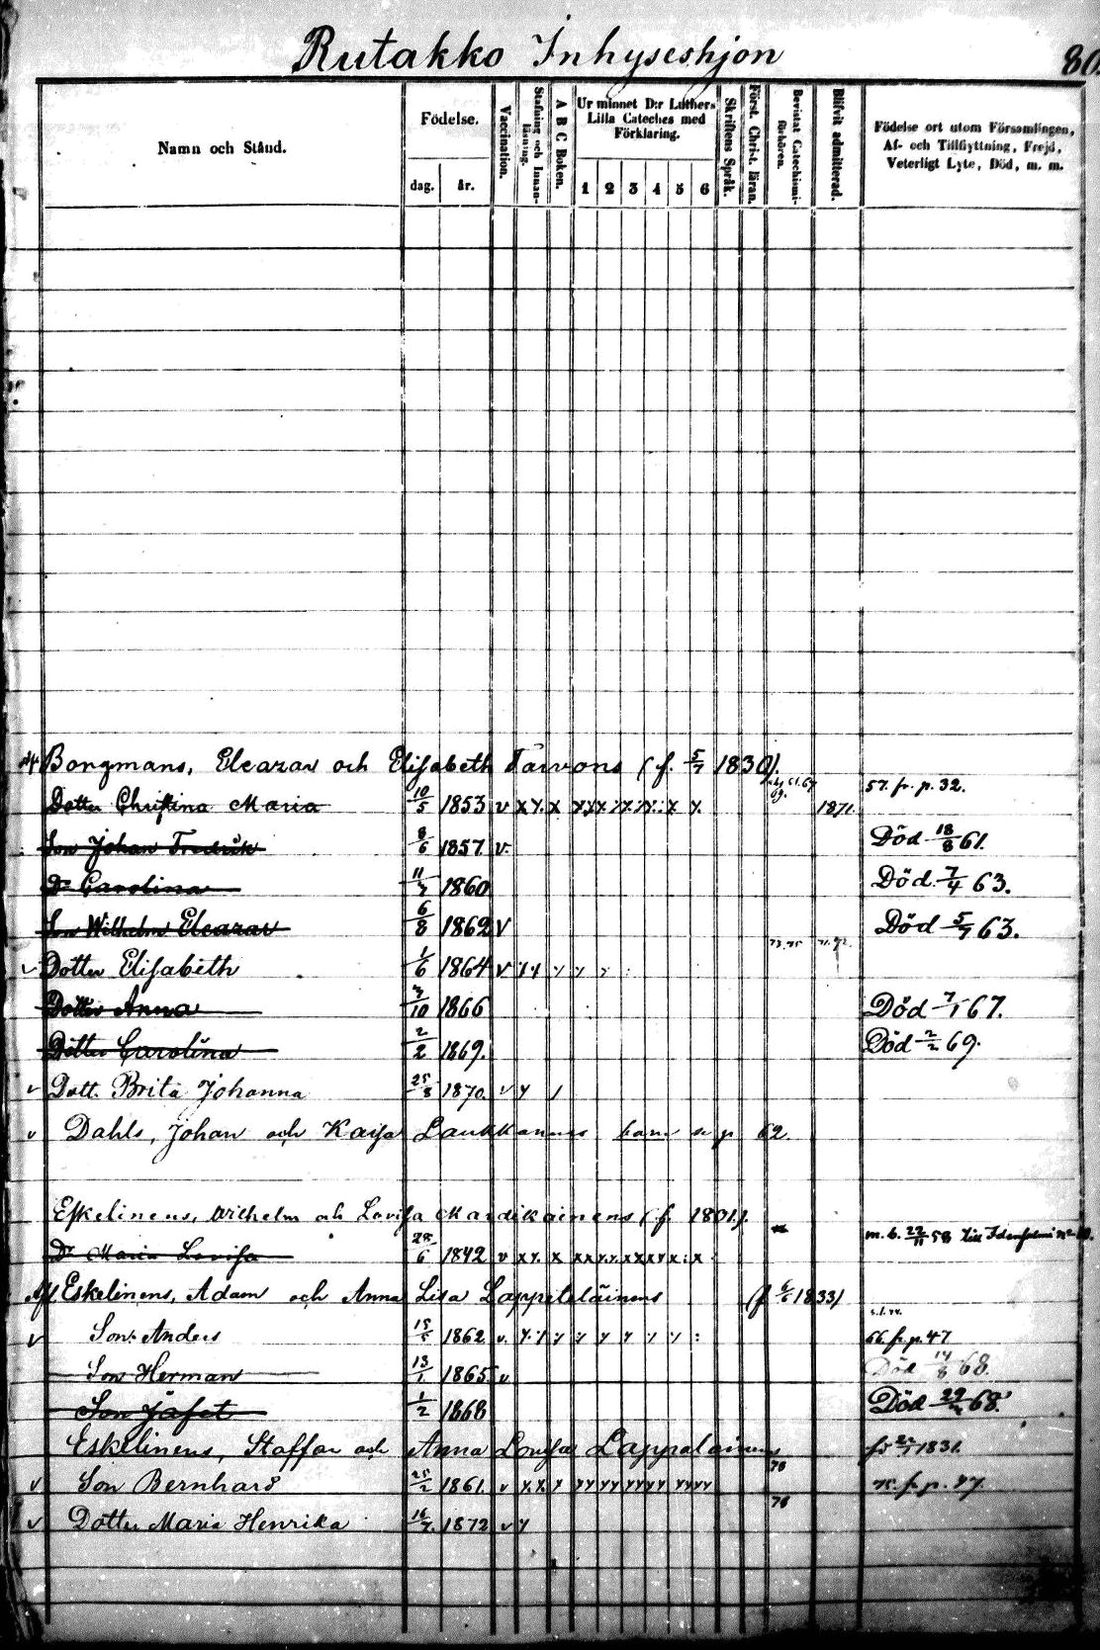 Rutakko Inhyseshjon 80
Namn och Stånd.
Födelse.
dag. år.
Vaccination.
Stafning och Innan-läsning.
A B C Boken.
Ur minnet D:r Luthers
Lilla Cateches med
Förklaring.
1 2 3 4 5 6
Skriftens Språk.
Först. Christ. läran.
Bevistat Catechismi-förhören.
Blifvit admitterad.
Födelse ort utom Församlingen,
Af- och Tillflyttning, Frejd,
Veterligt Lyte, Död, m. m.
Borgmans, Eleazar och Elisabeth (f. 5/7 1830).
Dotter Christina Maria 10/5 1853 v x x x 1871. 57. fr. p. 32.
Son Johan Fredrik 8/6 1857 v. Död 18/8 61.
Dr Carolina 11/7 1860 Död 7/4 63.
Son Wilhelm Eleazar 6/8 1862 v Död 5/7 63.
v Dotter Elisabeth 1/6 1864 v
Dotter Anna 3/10 1866 Död 7/1 67.
Dotter Carolina 2/2 1869. Död 2/2 69.
v Dott. Brita Johanna 25/3 1870. v
v Dahls, Johan och Kaisa Laukkanens barn se p 62.
Eskelinens, Wilhelm och Lovisa (f. 1801).
Dr Maria Lovisa 28/6 1842 v x x x m. b. 22/11 58 till
Eskelinens, Adam och Anna Lisa Lappeteläinens (f 6/6 1833)
v Son Anders 15/5 1862 v. 66 fr. p. 47
Son Herman 13/1 1865 v Död 14/8 68.
Son Jafet 1/2 1868 Död 68.
Eskelinens, Staffan och Anna Lovisa Lappalainens 1831.
v Son Bernhard 25/2 1861. v 76 75. fr. p. 47.
v Dotter Maria Henrika 16/7 1872 v 76